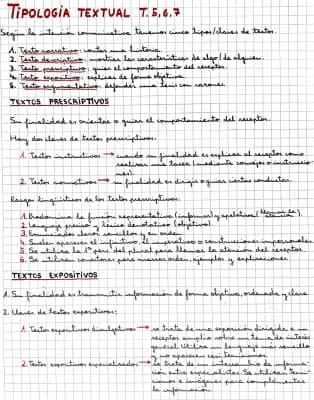 TIPOLOGÍA TEXTUAL T.5,6,7
Según la intención comunicativa tenemos cinco tipos/clases de textos.
1. Texto narrativo: contar una historia.
2. Texto descriptivo: mostrar las características de algo/de alguien.
3. Texto prescriptivo: guiar el comportamiento del receptor.
4. Texto expositivo: explicar de forma objetiva.
5. Texto argumentativo: defender una tesis con razones.
TEXTOS PRESCRIPTIVOS
Su finalidad es orientar o guiar el comportamiento del receptor.
Hay dos clases de textos prescriptivos:
1. Textos instructivos → cuando su finalidad es explicar al receptor como
realizar una tarea (mediante consejos o instruccio-
nes).
2. Textos normativos → su finalidad es dirigir o guiar ciertas conductas.
Rasgos lingüísticos de los textos prescriptivos:
1. Predomina la función representativa (informar) y apelativa (llamar la atención).
2. Lenguaje preciso y léxico denotativo (objetivo).
3. Enunciados claros, sencillos y en orden.
4. Suelen aparecer el infinitivo, el imperativo o construcciones impersonales.
5. Se utiliza la 1ª pers. del plural para llamar la atención del receptor.
6. Se utilizan conectores para marcar orden, ejemplos y explicaciones.
TEXTOS EXPOSITIVOS
1. Su finalidad es transmitir información de forma objetiva, ordenada y clara.
2. Clases de textos expositivos:
1. Textos expositivos divulgativos → se trata de una exposición dirigida a un
receptor amplio sobre un tema de interés
general. Utiliza un lenguaje más sencillo
y no aparecen casi tecnicismos.
2. Textos expositivos especializados → Se trata de un intercambio de informa-
ción entre especialistas. Se utilizan tecni-
cismos e imágenes para complementar
la información.